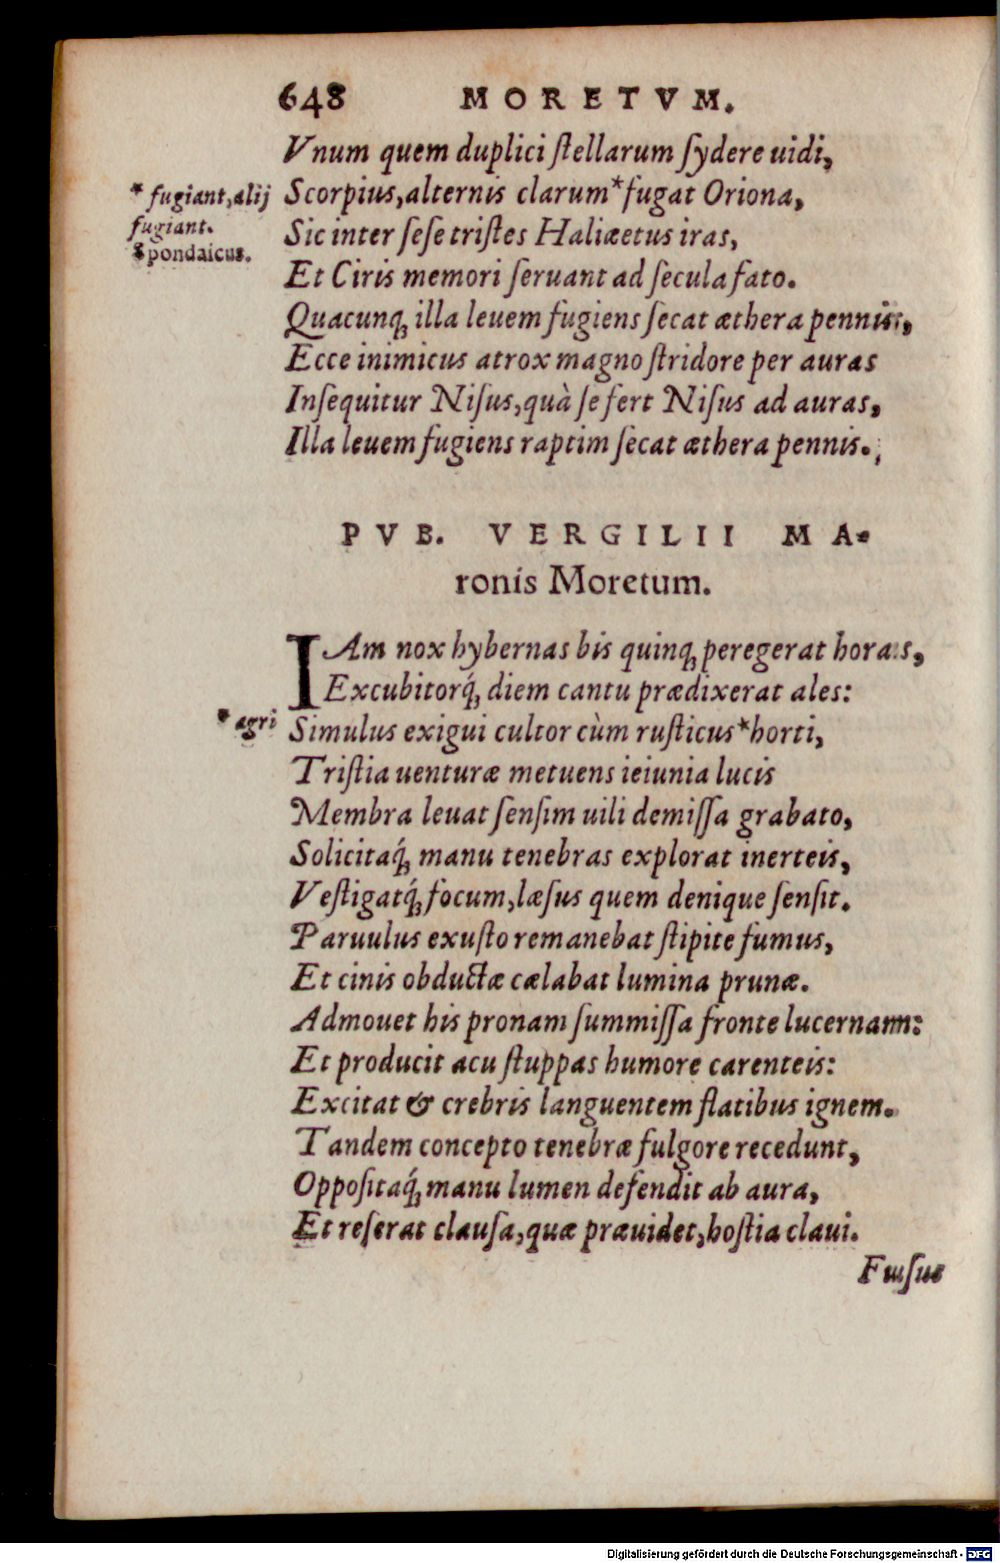 648 MORETVM.
Vnum quem duplici ſtellarum ſydere uidi,
* fugiant, alij
fugiant.
Spondaicus.
Scorpius, alternis clarum*fugat Oriona,
Sic inter ſeſe triſtes Haliæetus iras,
Et Ciris memori ſeruant ad ſecula fato.
Quacunq; illa leuem fugiens ſecat æthera pennis,
Ecce inimicus atrox magno ſtridore per auras
Inſequitur Niſus, quà ſe fert Niſus ad auras,
Illa leuem fugiens raptim ſecat æthera pennis.
PVB. VERGILII MA-
ronis Moretum.
IAm nox hybernas bis quinq; peregerat horas,
Excubitorq́; diem cantu prædixerat ales:
* agri
Simulus exigui cultor cùm ruſticus*horti,
Triſtia uenturæ metuens ieiunia lucis
Membra leuat ſenſim uili demiſſa grabato,
Solicitaq́; manu tenebras explorat inerteis,
Veſtigatq́; focum, læſus quem denique ſenſit.
Paruulus exuſto remanebat ſtipite fumus,
Et cinis obductæ cælabat lumina prunæ.
Admouet his pronam ſummiſſa fronte lucernam:
Et producit acu ſtuppas humore carenteis:
Excitat & crebris languentem flatibus ignem.
Tandem concepto tenebræ fulgore recedunt,
Oppoſitaq́; manu lumen defendit ab aura,
Et reſerat clauſa, quæ præuidet, hoſtia claui.
Digitalisierung gefördert durch die Deutsche Forschungsgemeinschaft - DFG